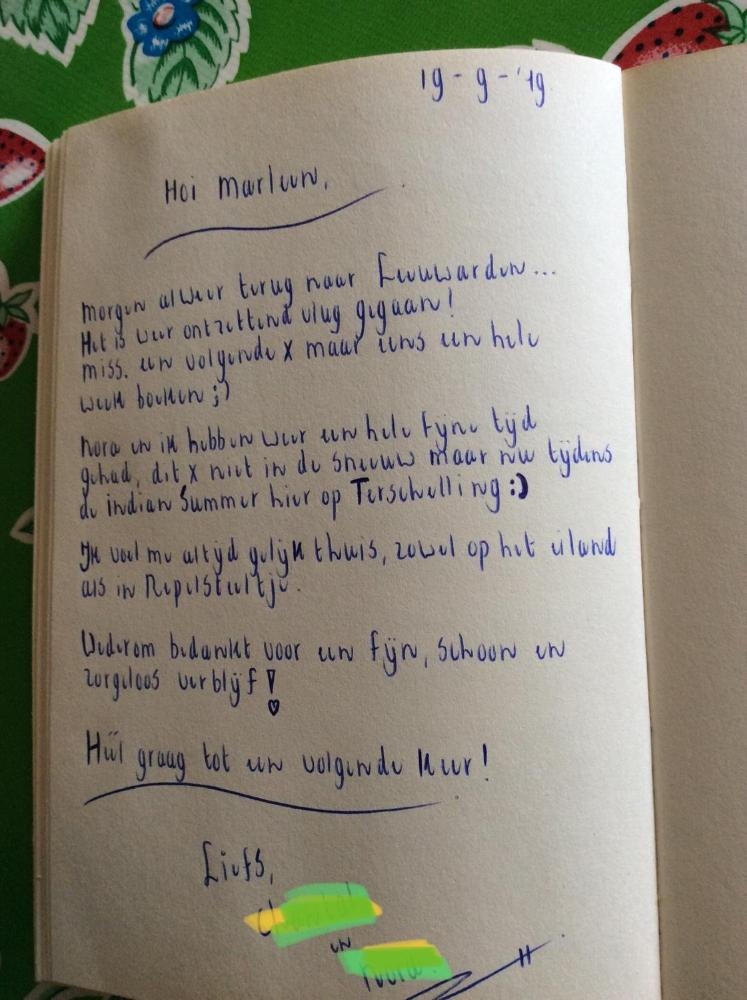 19-9-'19
Hoi Marleen,
Morgen alweer terug naar Leeuwarden...
Het is weer ontzettend vlug gegaan!
Miss. een volgende x maar eens een hele
week boeken ;)
Nora en ik hebben weer een hele fijne tijd
gehad, dit x niet in de sneeuw maar nu tijdens
de indian Summer hier op Terschelling :)
Ik voel me altijd gelijk thuis, zowel op het eiland
als in Repelsteeltje.
Wederom bedankt voor een fijn, schoon en
zorgeloos verblijf!
Hééél graag tot een volgende keer!
Liefs,
en